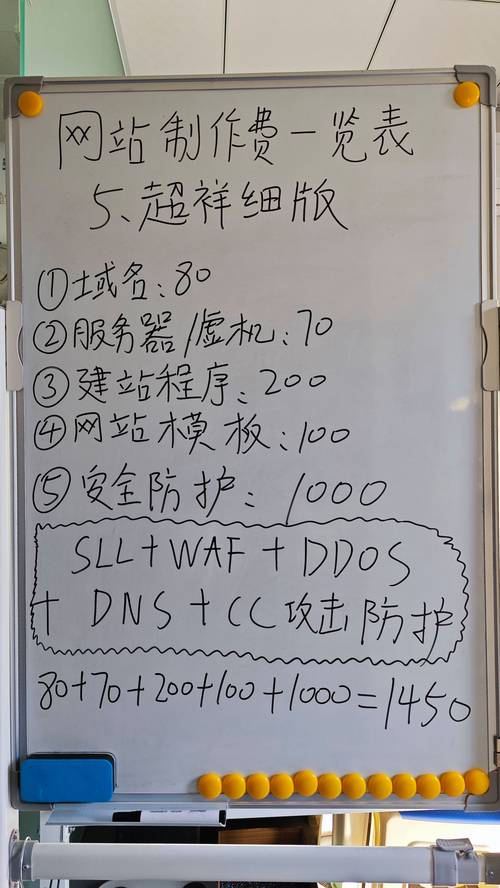 网站制作费一览表
5、超祥细版
①域名:80
②服务器/虚机:70
③建站程序:200
④网站模板:100
⑤安全防护:1000
SLL+WAF+DDOS
+DNS+CC攻击防护
80+70+200+100+1000=1450